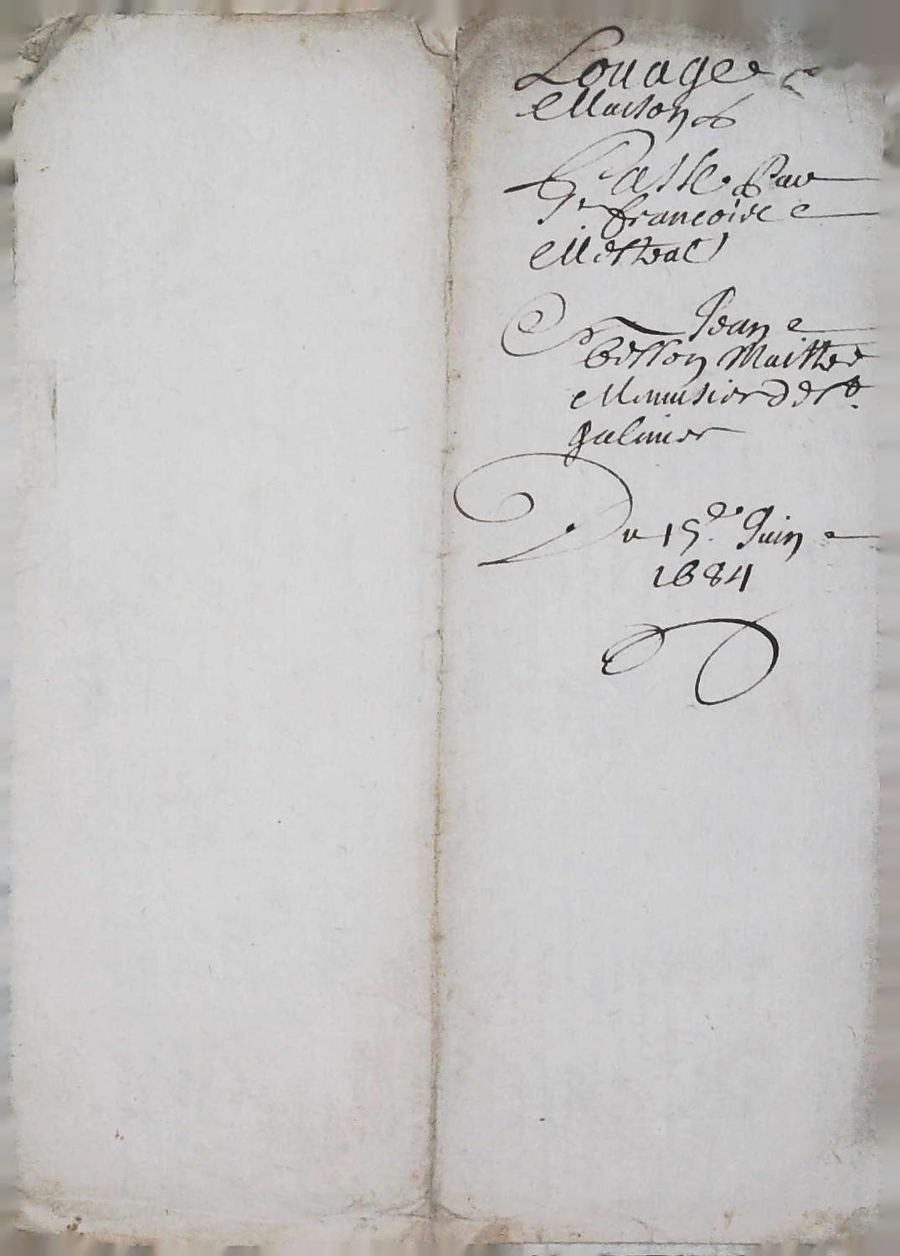 Louage
Maison
Passe Par
Sr françoise
Mestral
Jean
Besson Maistre
Menusier de St
galmier
Du 15e. Juin
1684